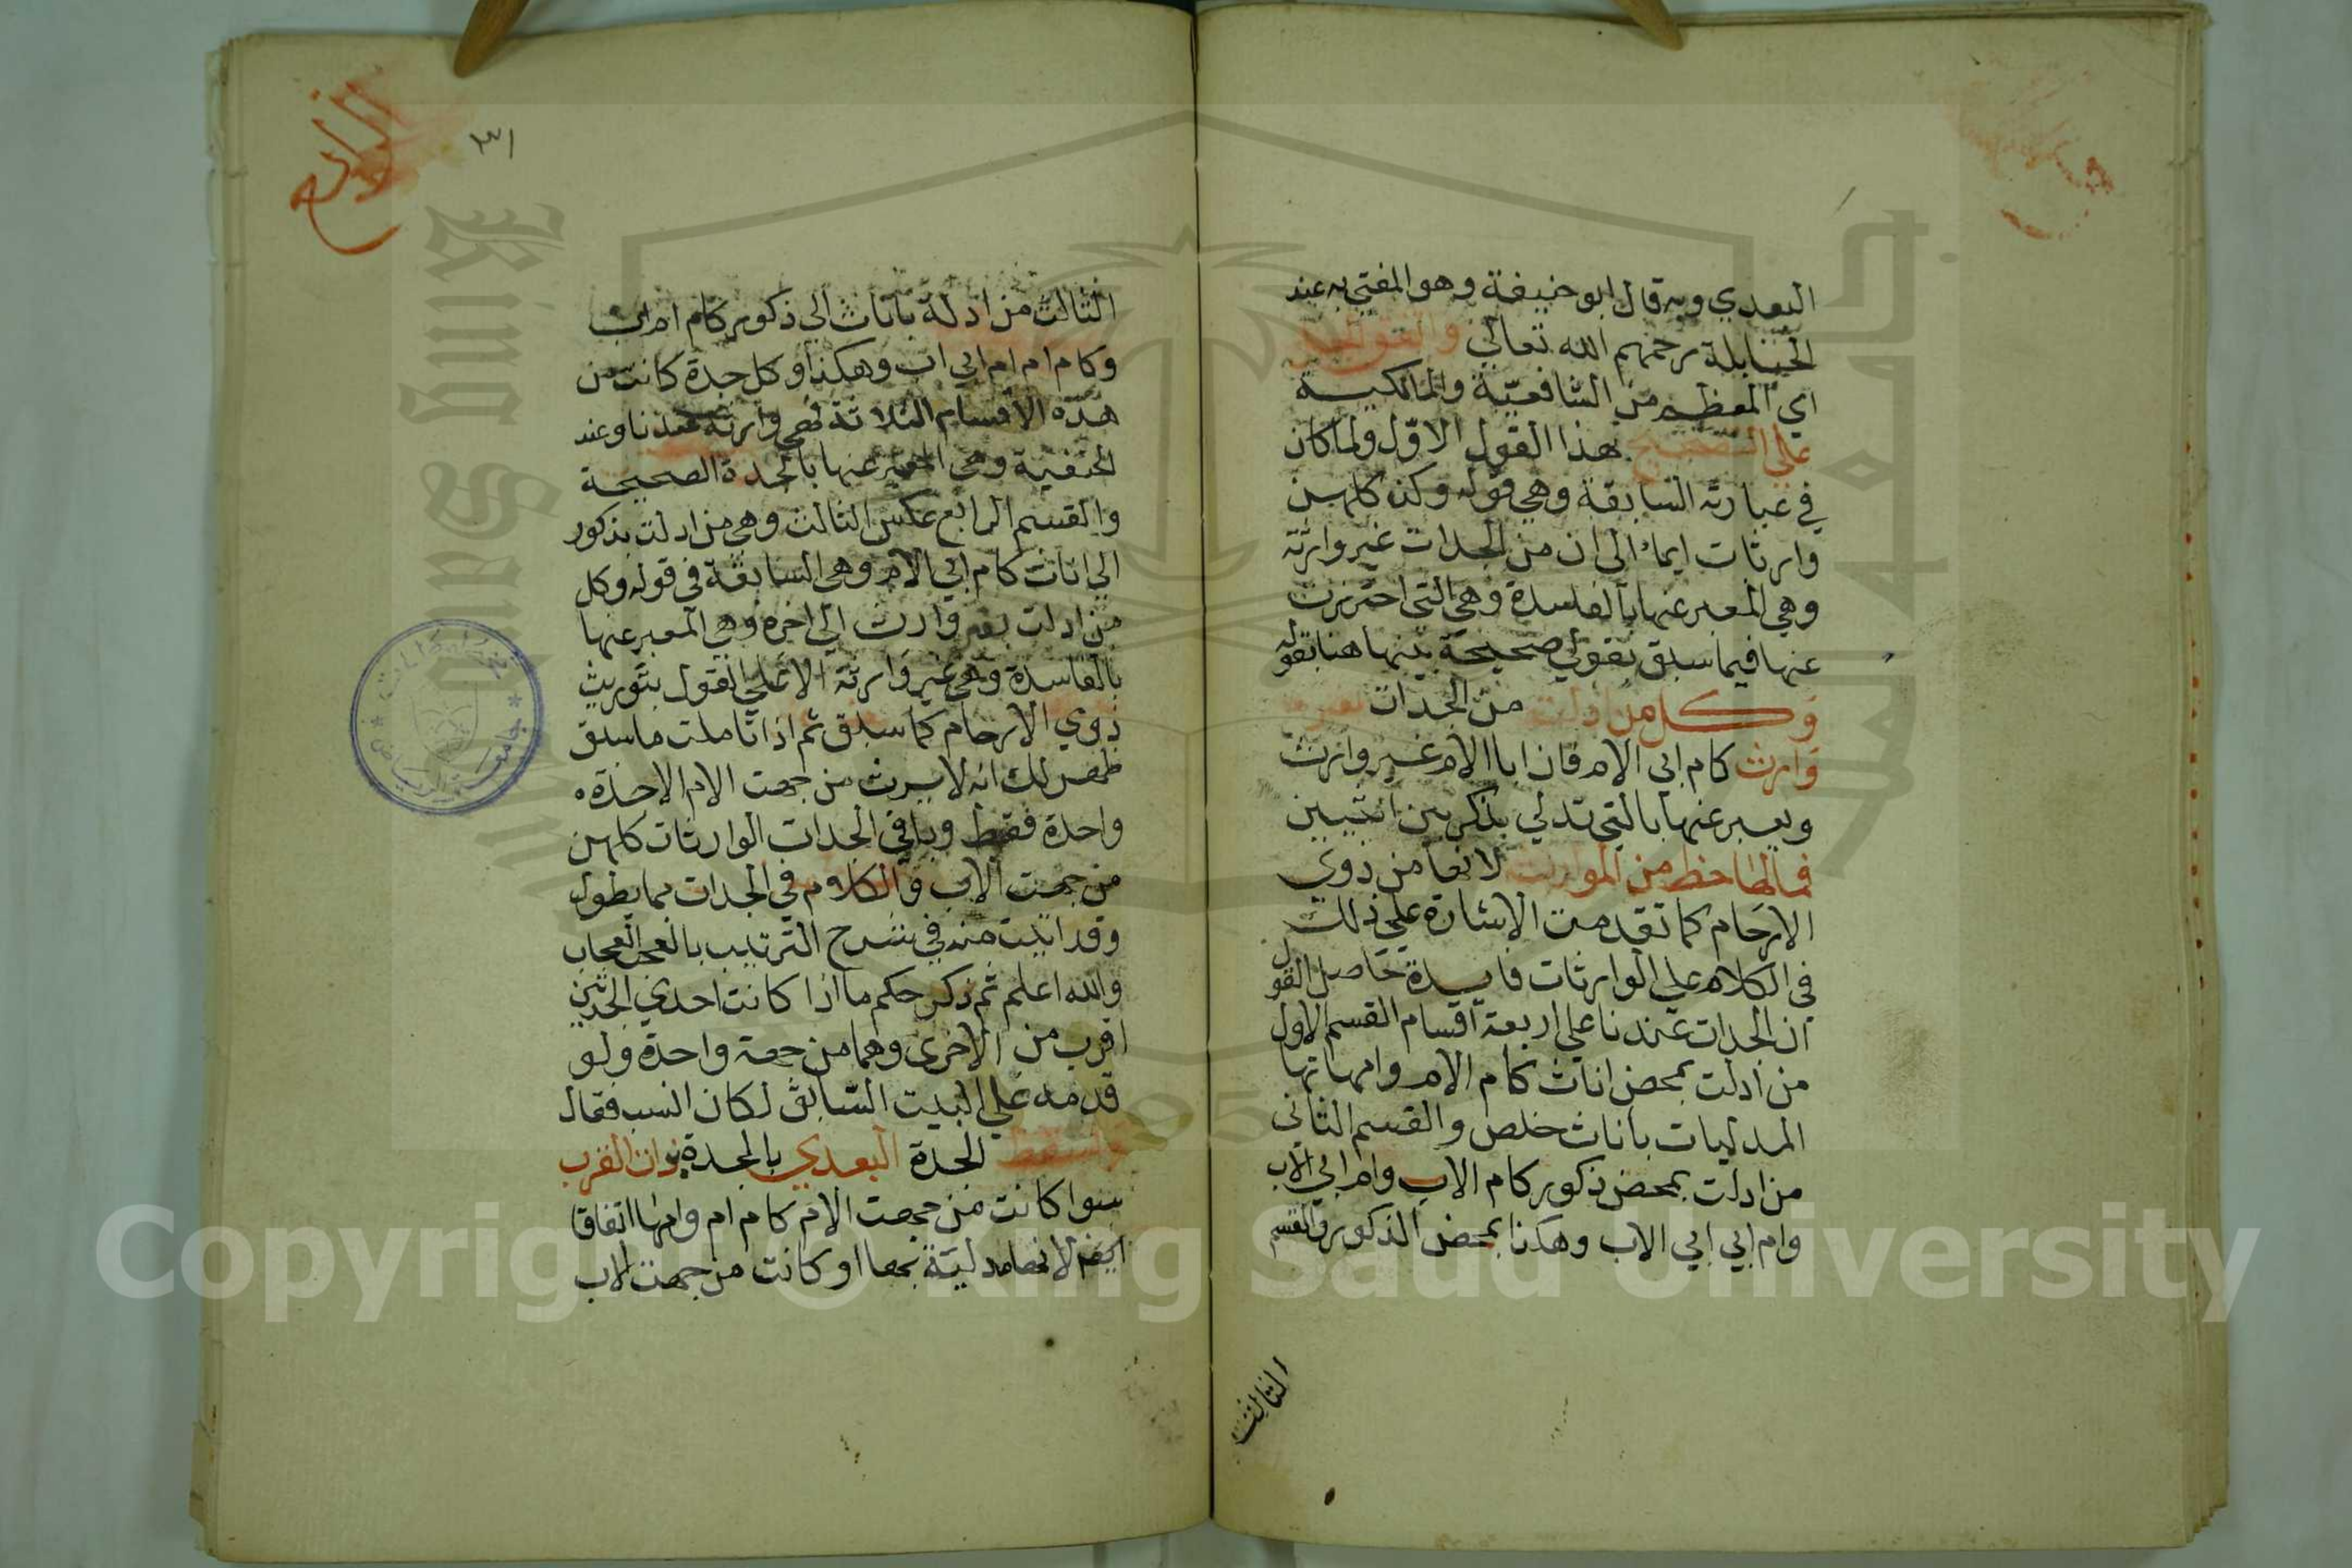 البعدي وبه قال ابو حنيفة وهو المفتي به عند
الحنابلة رحمهم الله تعالي واتفق الجل
اي المعظم من الشافعية والمالكية
علي التصحيح لهذا القول الاول ولما كان
في عبارته السابقة وهي قوله وكن كلهن
وارثات ايماء الى ان من الجدات غير وارثة
وهي المعبر عنها بالفاسدة وهي التي احترزت
عنها فيما سبق بقولي صحيحة بينها هنا بقوله
وكل من ادلت من الجدات بغير
وارث كام ابي الام فان ابا الام غير وارث
ويعبر عنها بالتي تدلي بذكر بين انثيين
فمالها حظ من الموارث لانها من ذوي
الارحام كما تقدمت الاشارة علي ذلك
في الكلام علي الوارثات فايدة حاصل القول
ان الجدات عندنا علي اربعة اقسام القسم الاول
من ادلت بمحض اناث كام الام وامهاتها
المدليات باناث خلص والقسم الثاني
من ادلت بمحض ذكور كام الاب وام ابي الاب
وام ابي ابي الاب وهكذا بمحض الذكور والقسم
الثالث
الرابع
٣١
الثالث من ادلة باناث الي ذكور كام ام اب
وكام ام ام ابي اب وهكذا وكل جدة كانت من
هذه الاقسام الثلاثة فهي وارثة عندنا وعند
الحنفية وهي المعبر عنها بالجدة الصحيحة
والقسم الرابع عكس الثالث وهي من ادلت بذكور
الي اناث كام ابي الام وهي السابقة في قوله وكل
من ادلت بغير وارث الي اخره وهي المعبر عنها
بالفاسدة وهي غير وارثة الا علي القول بتوريث
ذوي الارحام كما سبق ثم اذا تاملت ما سبق
ظهر لك انه لا يرث من جهت الام الا جدة
واحدة فقط وباقي الجدات الوارثات كلهن
من جهت الاب والكلام في الجدات مما يطول
وقد اتيت منه في شرح الترتيب بالعجب العجاب
والله اعلم ثم ذكر حكم ما اذا كانت احدي الجدتين
اقرب من الاخرى وهما من جهة واحدة ولو
قدمه علي البيت السابق لكان انسب فقال
وتسقط الجدة البعدي بالجدة ذات القرب
سوا كانت من جهت الام كام ام وامها اتفاقا
لانها مدلية بها او كانت من جهت الاب
جامعة الرياض
King Saud University
Copyright © King Saud University